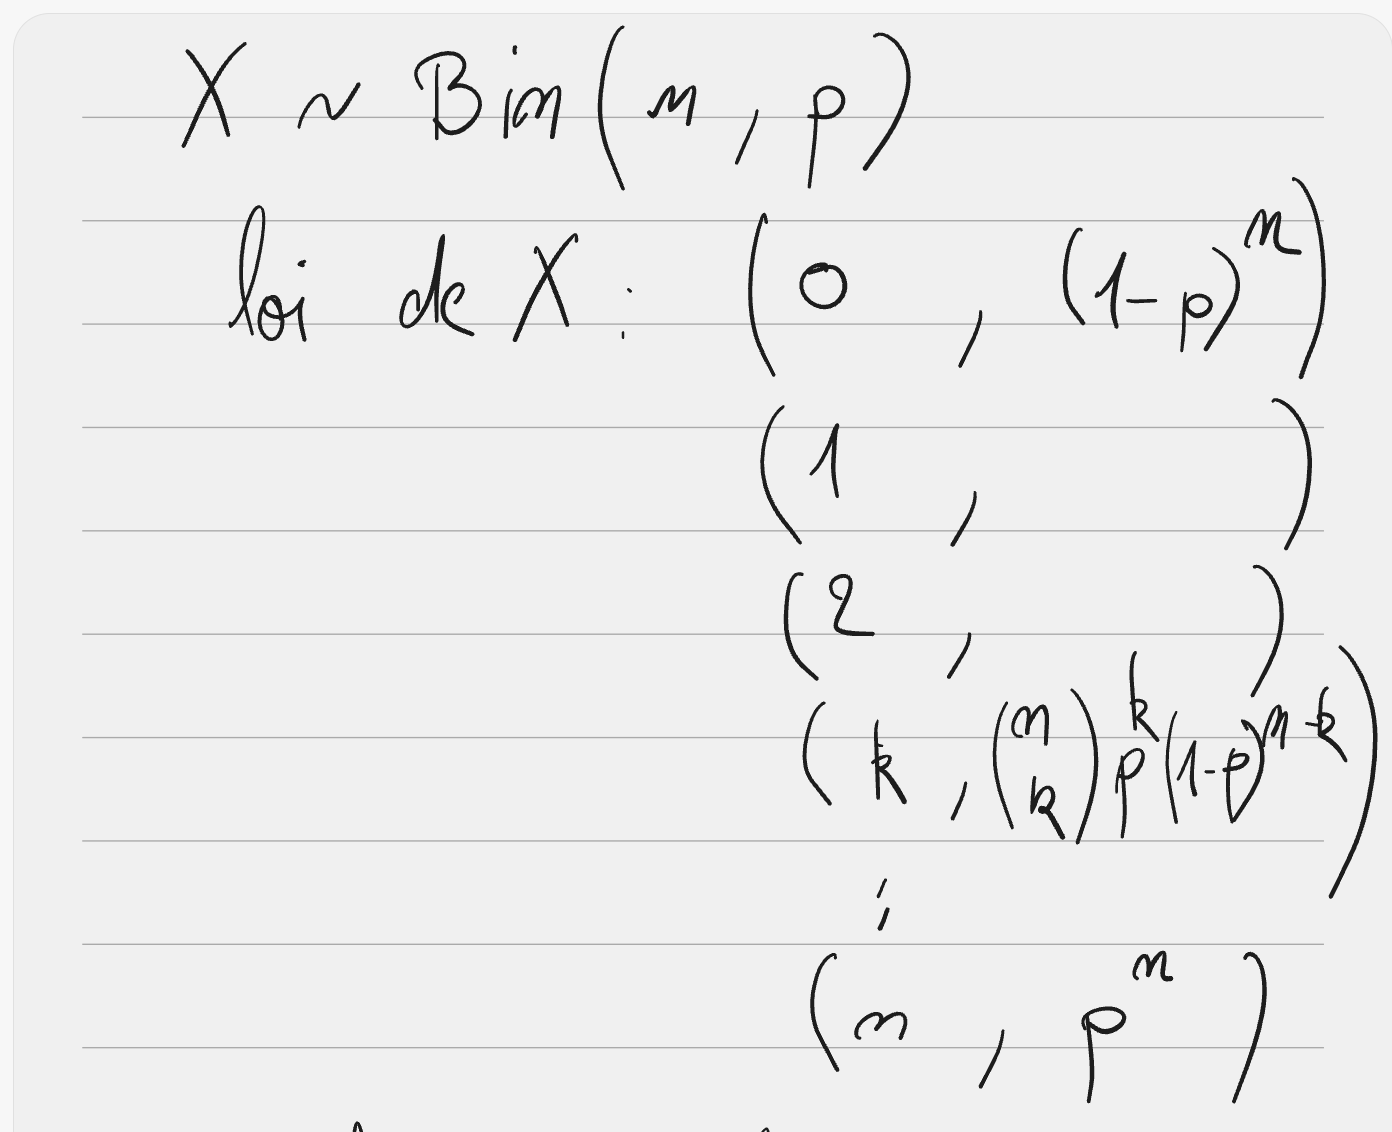 X ~ Bin(n, p)
loi de X : (0 , (1-p)^n)
(1 , )
(2 , )
(k , (n k) p^k (1-p)^{n-k})
⋮
(n , p^n)